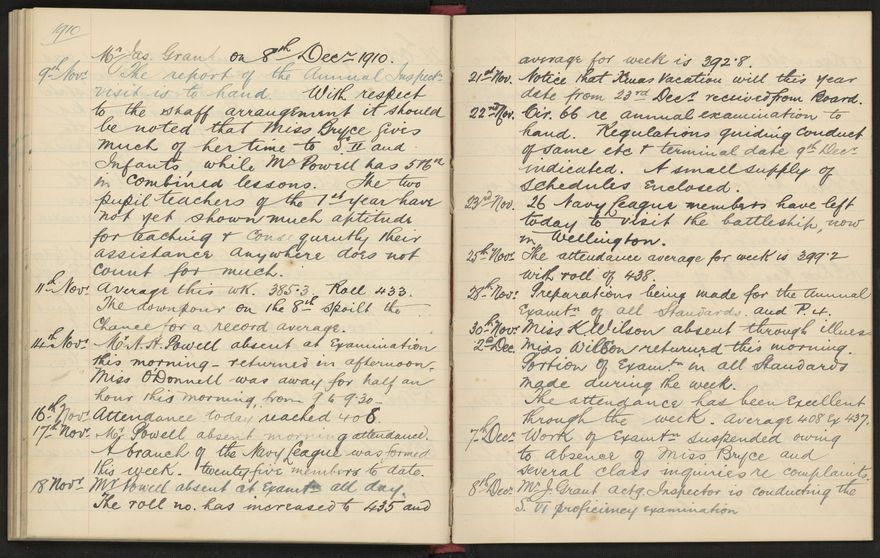 1910
Mr Jas. Grant on 8th Decr 1910.
9th Novr The report of the Annual Inspectn
visit is to hand. With respect
to the staff arrangement it should
be noted that Miss Bryce gives
much of her time to S. II and
Infants, while Mr Powell has
in combined lessons. The two
pupil teachers of the 1st year have
not yet shown much aptitude
for teaching & consequently their
assistance anywhere does not
count for much.
11th Novr Average this wk. 385.3. Roll 433.
The downpour on the 8th spoilt the
chance for a record average.
14th Novr Mr A.H. Powell absent at Examination
this morning - returned in afternoon.
Miss O'Donnell was away for half an
hour this morning, from 9 to 9.30 -
16th Novr Attendance today reached 408.
17th Novr Mr Powell absent morning attendance.
A branch of the Navy League was formed
this week. twenty five members to date.
18 Novr Mr Powell absent at Examtn all day.
The roll no. has increased to 435 and
average for week is 392.8.
21st Nov. Notice that Xmas Vacation will this year
date from 23rd Decr received from Board.
22nd Nov. Cir. 66 re annual examination to
hand. Regulations guiding conduct
of same etc & terminal date 9th Decr
indicated. A small supply of
Schedules Enclosed.
23rd Nov. 26 Navy League members have left
today to visit the battleship, now
in Wellington.
25th Novr The attendance average for week is 399.2
with roll of 438.
28th Novr Preparations being made for the Annual
Examtn of all Standards. and P. 4.
30th Novr Miss K Wilson absent through illness
2d Dec. Miss Wilson returned this morning.
Portion of Examtn in all Standards
made during the week.
The attendance has been Excellent
through the week. Average 408 Ex 437.
7th Decr Work of Examtn suspended owing
to absence of Miss Bryce and
several class inquiries re complaints.
8th Decr Mr J. Grant actg. Inspector is conducting the
S. VI proficiency examination